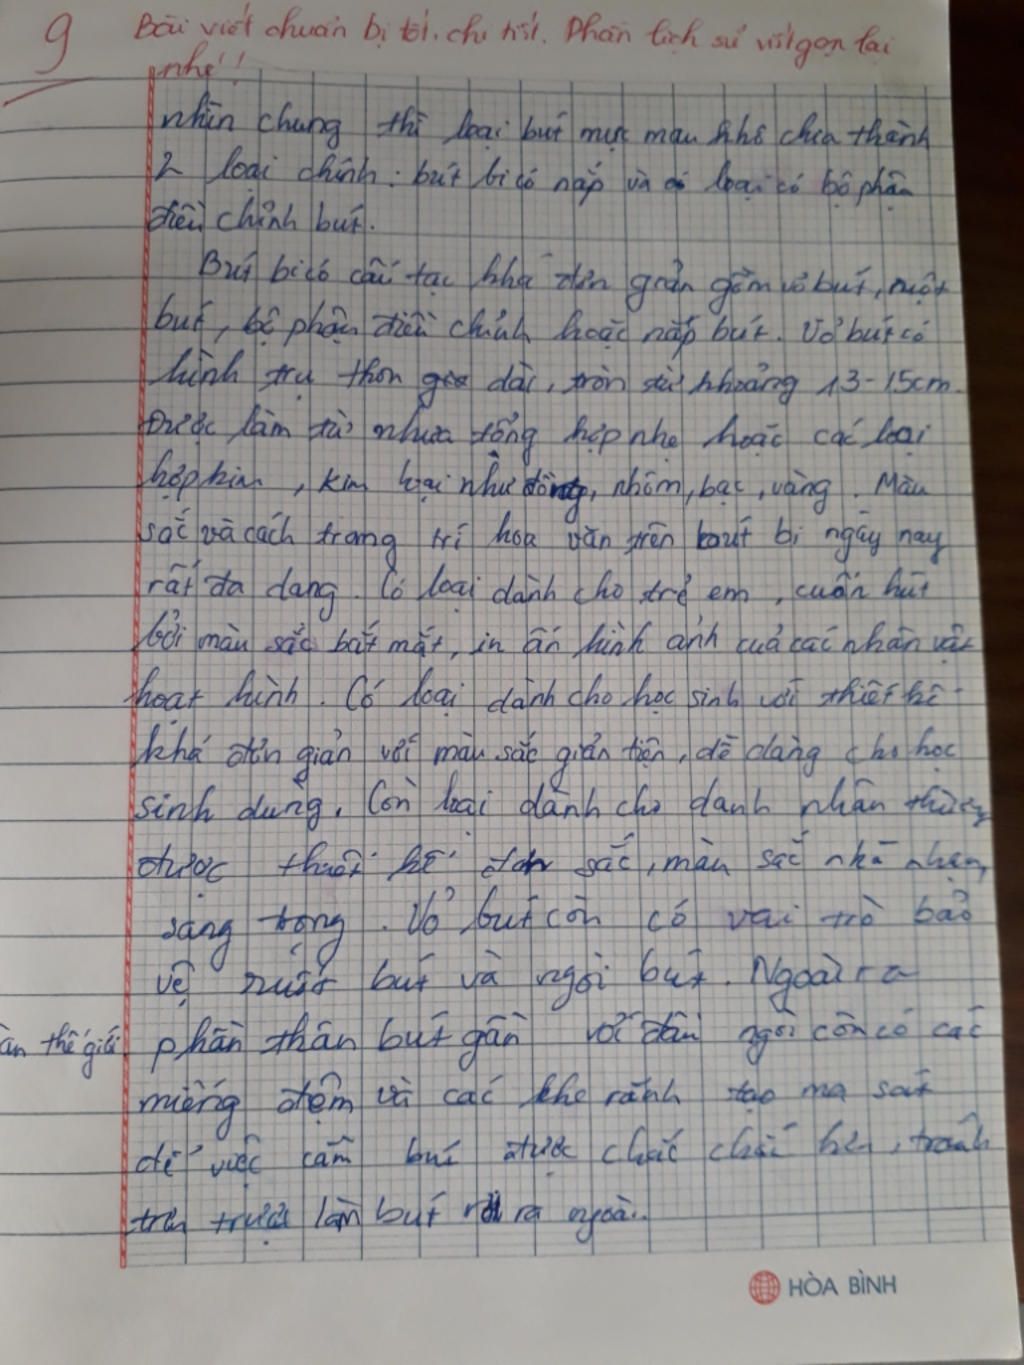 9
Bài viết chuẩn bị tốt, chi tiết. Phần lịch sử viết gọn lại
nhé!!
nhìn chung thì loại bút mực màu khô chia thành
2 loại chính: bút bi có nắp và loại có bộ phận
điều chỉnh bút.
Bút bi có cấu tạo khá đơn giản gồm vỏ bút, ruột
bút, bộ phận điều chỉnh hoặc nắp bút. Vỏ bút có
hình trụ thon dài, tròn khoảng 13-15cm.
Được làm từ nhựa tổng hợp nhẹ hoặc các loại
hợp kim, kim loại như đồng, nhôm, bạc, vàng. Màu
sắc và cách trang trí hoa văn trên bút bi ngày nay
rất đa dạng. Có loại dành cho trẻ em, cuốn hút
bởi màu sắc bắt mắt, in ấn hình ảnh của các nhân vật
hoạt hình. Có loại dành cho học sinh với thiết kế
khá đơn giản với màu sắc giản tiện, dễ dàng cho học
sinh dùng. Còn loại dành cho danh nhân thường
được thiết kế đơn sắc, màu sắc nhã nhặn,
sang trọng. Vỏ bút còn có vai trò bảo
vệ ruột bút và ngòi bút. Ngoài ra
phần thân bút gần với đầu ngòi còn có các
àn thế giới
miếng đệm và các khe rãnh tạo ma sát
để việc cầm bút được chắc chắn hơn, tránh
trơn trượt làm bút ra ngoài.
HÒA BÌNH